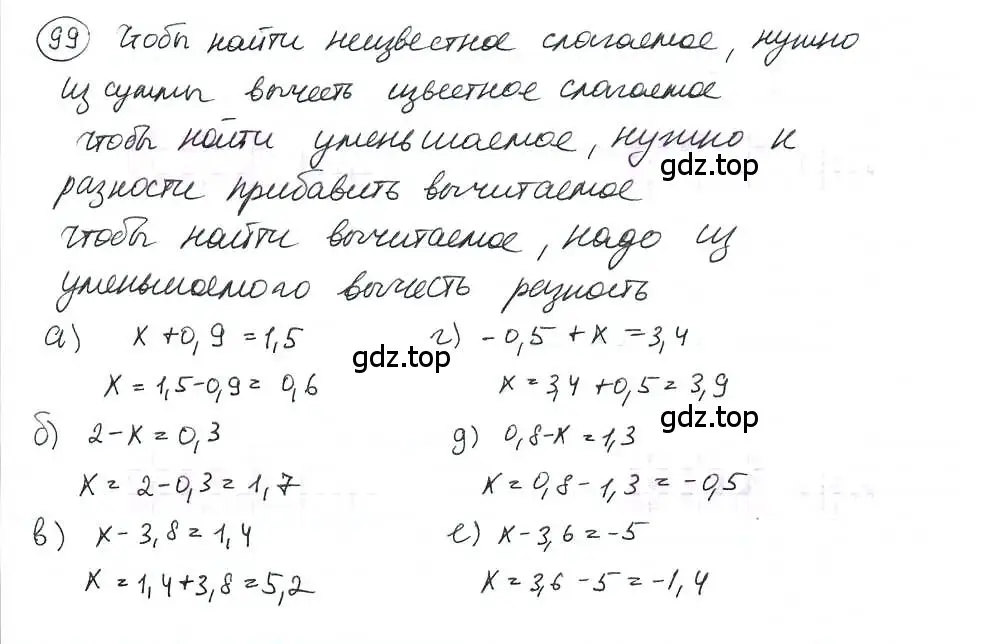 99 Чтобы найти неизвестное слагаемое, нужно
из суммы вычесть известное слагаемое
Чтобы найти уменьшаемое, нужно к
gdz.top
разности прибавить вычитаемое
Чтобы найти вычитаемое, надо из
уменьшаемого вычесть разность
а) x + 0,9 = 1,5
x = 1,5 - 0,9 = 0,6
gdz.top
б) 2 - x = 0,3
x = 2 - 0,3 = 1,7
в) x - 3,8 = 1,4
x = 1,4 + 3,8 = 5,2
г) - 0,5 + x = 3,4
x = 3,4 + 0,5 = 3,9
gdz.top
д) 0,8 - x = 1,3
x = 0,8 - 1,3 = -0,5
е) x - 3,6 = -5
x = 3,6 - 5 = -1,4